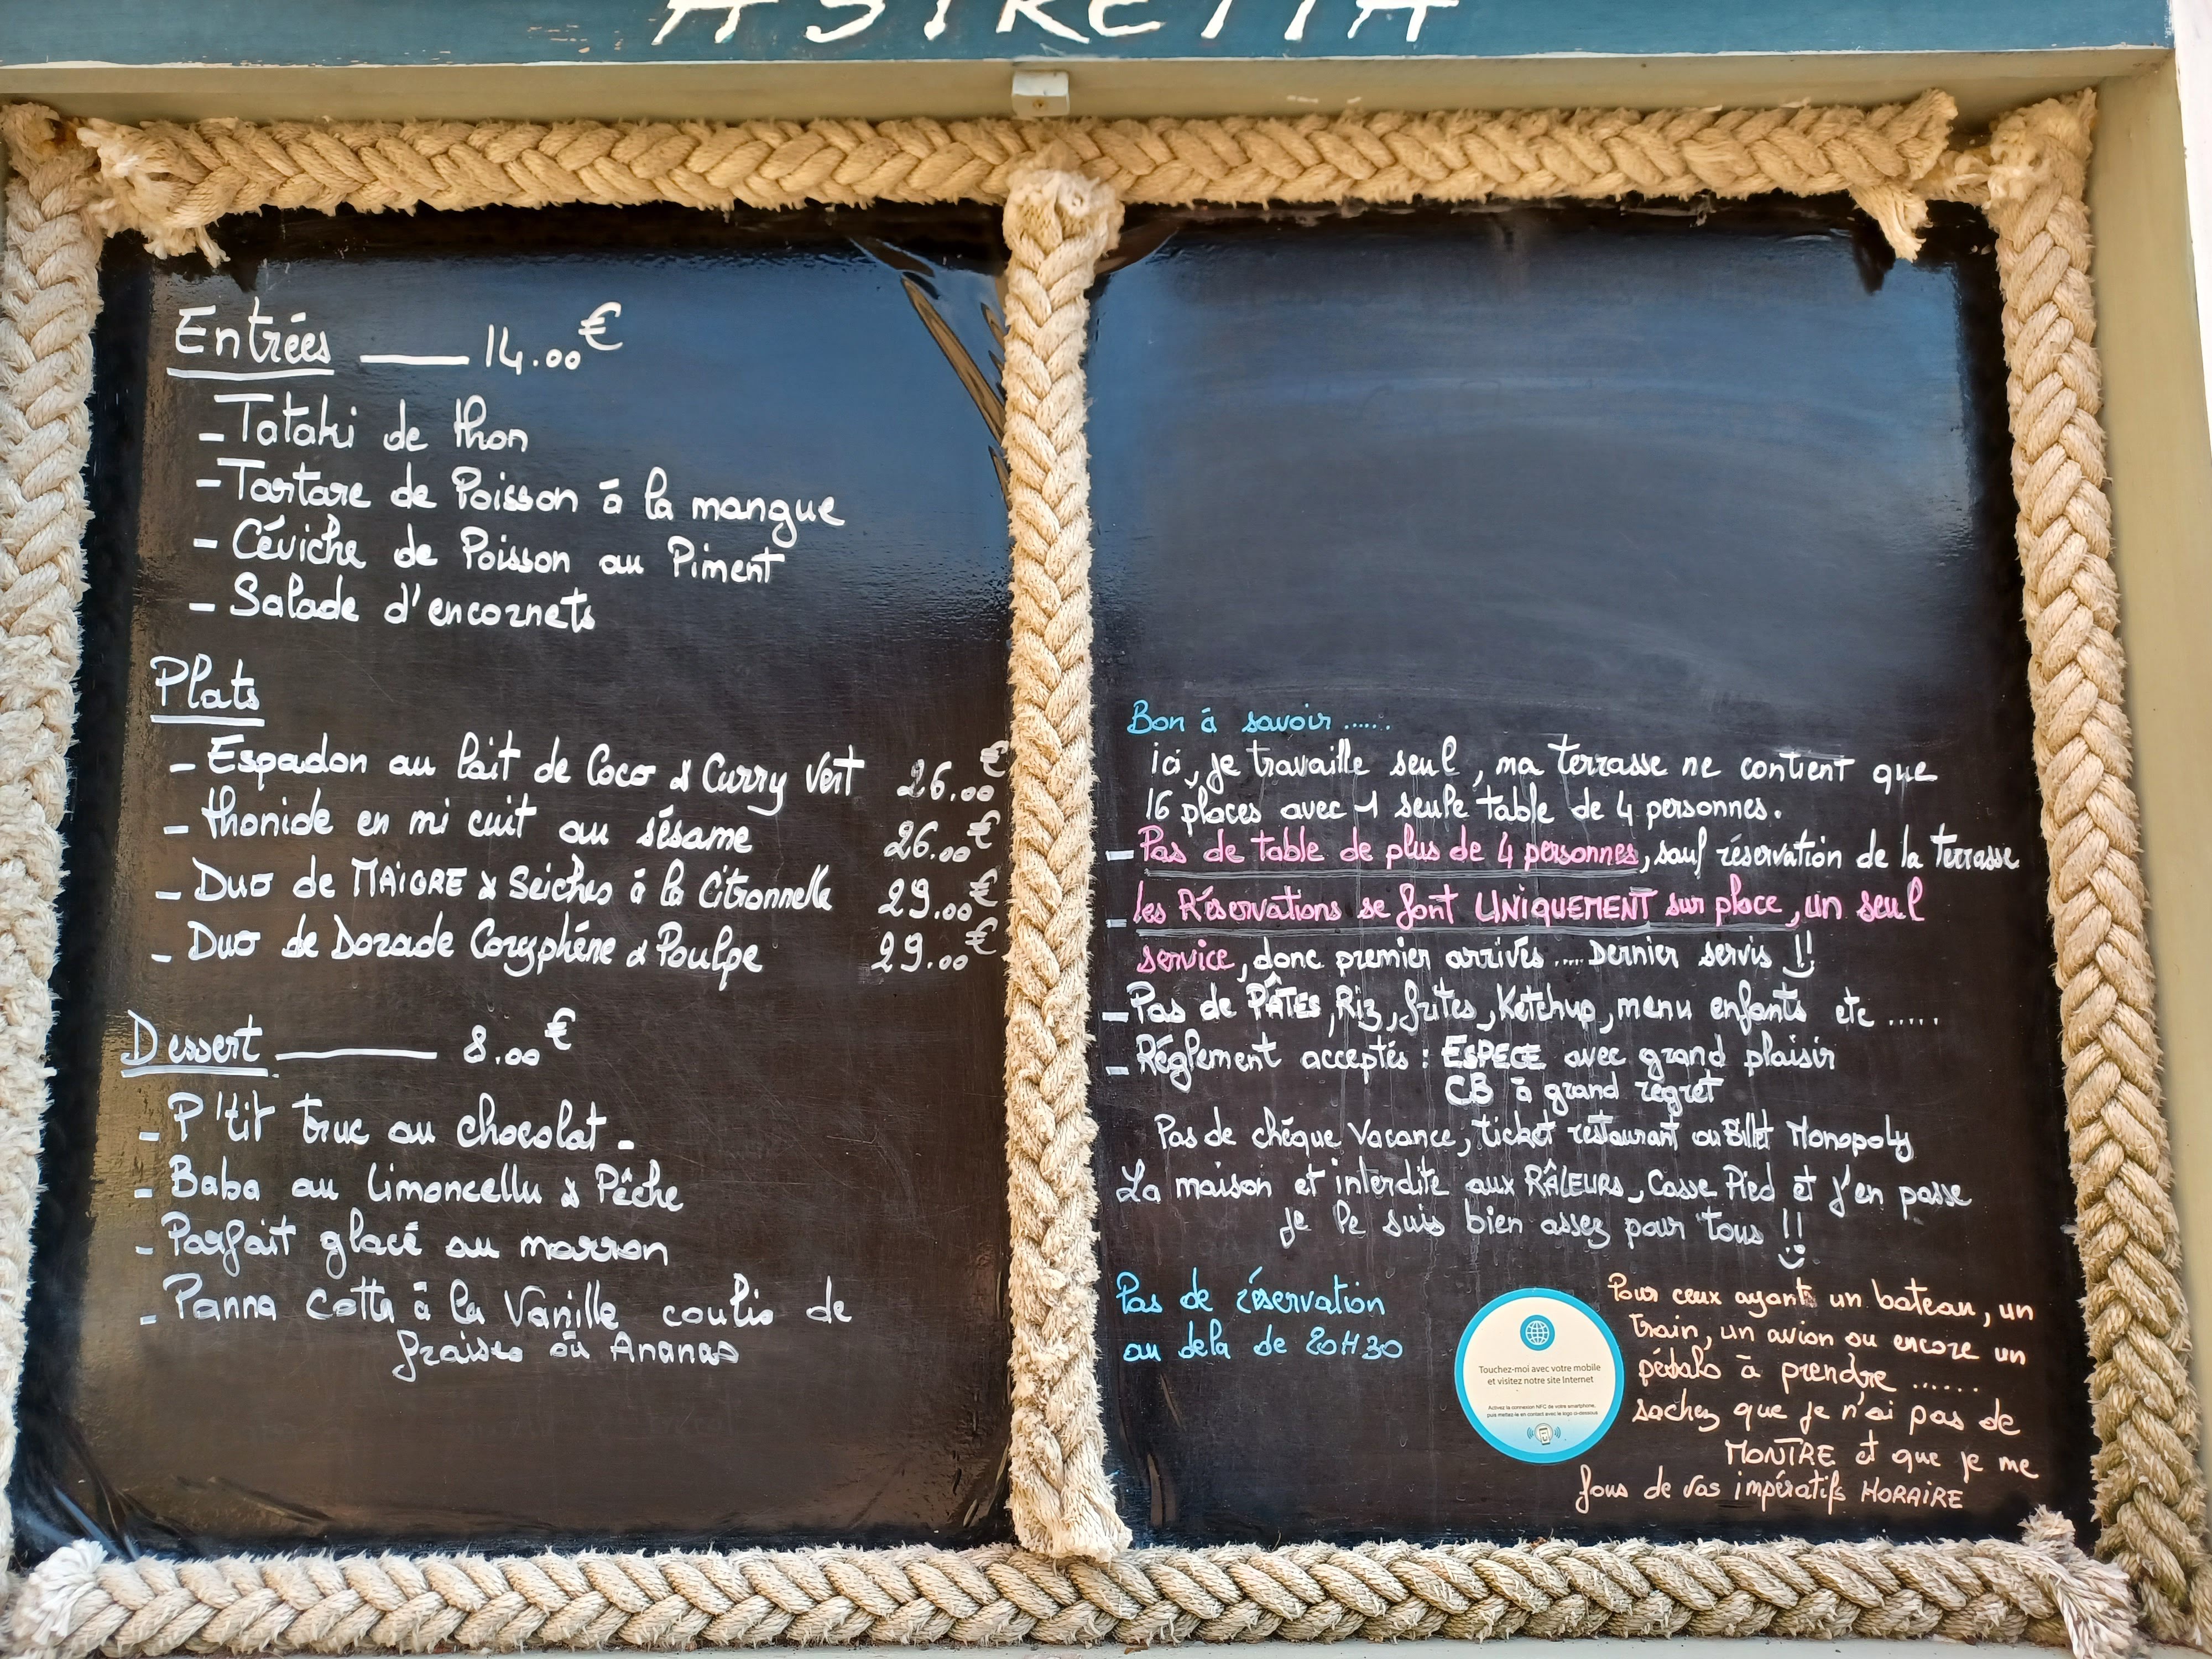 ASTRETTA
Entrées —— 14.00€
- Tataki de thon
- Tartare de Poisson à la mangue
- Céviche de Poisson au Piment
- Salade d'encornets
Plats
- Espadon au lait de Coco & Curry Vert 26.00€
- thonide en mi cuit au sésame 26.00€
- Duo de MAIGRE & Seiches à la Citronnelle 29.00€
- Duo de Dorade Coryphène & Poulpe 29.00€
Dessert —— 8.00€
- P'tit truc au chocolat -
- Baba au limoncellu & Pêche
- Parfait glacé au marron
- Panna cotta à la Vanille coulis de
fraises ou Ananas
Bon à savoir ......
ici, je travaille seul, ma terrasse ne contient que
16 places avec 1 seule table de 4 personnes.
- Pas de table de plus de 4 personnes, sauf réservation de la terrasse
- les Réservations se font UNIQUEMENT sur place, un seul
service, donc premier arrivés .... Dernier servis !!
- Pas de PÂTES, Riz, frites, Ketchup, menu enfants etc .....
- Réglement acceptés : ESPECE avec grand plaisir
CB à grand regret
Pas de chéque Vacance, ticket restaurant ou Billet Monopoly
La maison et interdite aux RÂLEURS, Casse Pied et j'en passe
je le suis bien assez pour tous !!
Pas de réservation
au dela de 20H30
Touchez-moi avec votre mobile
et visitez notre site Internet
Activez la connexion NFC de votre smartphone,
puis mettez-le en contact avec le logo ci-dessous.
Pour ceux ayant un bateau, un
train, un avion ou encore un
pédalo à prendre ......
sachez que je n'ai pas de
MONTRE et que je me
fous de vos impératifs HORAIRE